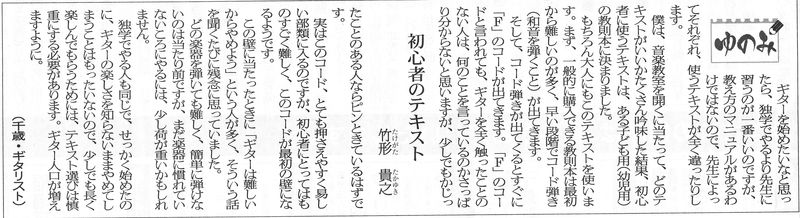 ゆのみ
初心者のテキスト
竹形　貴之
たけがた　たかゆき
　ギターを始めたいなと思っ
たら、独学でやるより先生に
習うのが一番いいのですが、
教え方のマニュアルがあるわ
けではないので、先生によっ
てそれぞれ、使うテキストが全く違ったりし
ます。
　僕は、音楽教室を開くに当たって、どのテ
キストがいいかたくさん吟味した結果、初心
者に使うテキストは、ある子ども用（幼児用）
の教則本に決まりました。
　もちろん大人にもこのテキストを使いま
す。まず、一般的に購入できる教則本は最初
から難しいのが多く、早い段階でコード弾き
（和音を弾くこと）が出てきます。
　そして、コード弾きが出てくるとすぐに
「F」のコードが出てきます。「F」のコー
ドと言われても、ギターを全く触ったことの
ない人は、何のことを言っているのかさっぱ
り分からないと思いますが、少しでもかじっ
たことのある人ならピンときているはずで
す。
　実はこのコード、とても押さえやすく易し
い部類に入るのですが、初心者にとってはも
のすごく難しく、このコードが最初の壁にな
るようです。
　この壁に当たったときに「ギターは難しい
からやめよう」という人が多く、そういう話
を聞くたびに残念に思っていました。
　どの楽器を弾いても難しく、簡単に弾けな
いのは当たり前ですが、まだ楽器に慣れてい
ないころにやるには、少し荷が重いかもしれ
ません。
　独学でやる人も同じで、せっかく始めたの
に、ギターの楽しさを知らないままやめてし
まうことはもったいないので、少しでも長く
楽しんでもらうためには、テキスト選びは慎
重にする必要があります。ギター人口が増え
ますように。
（千歳・ギタリスト）